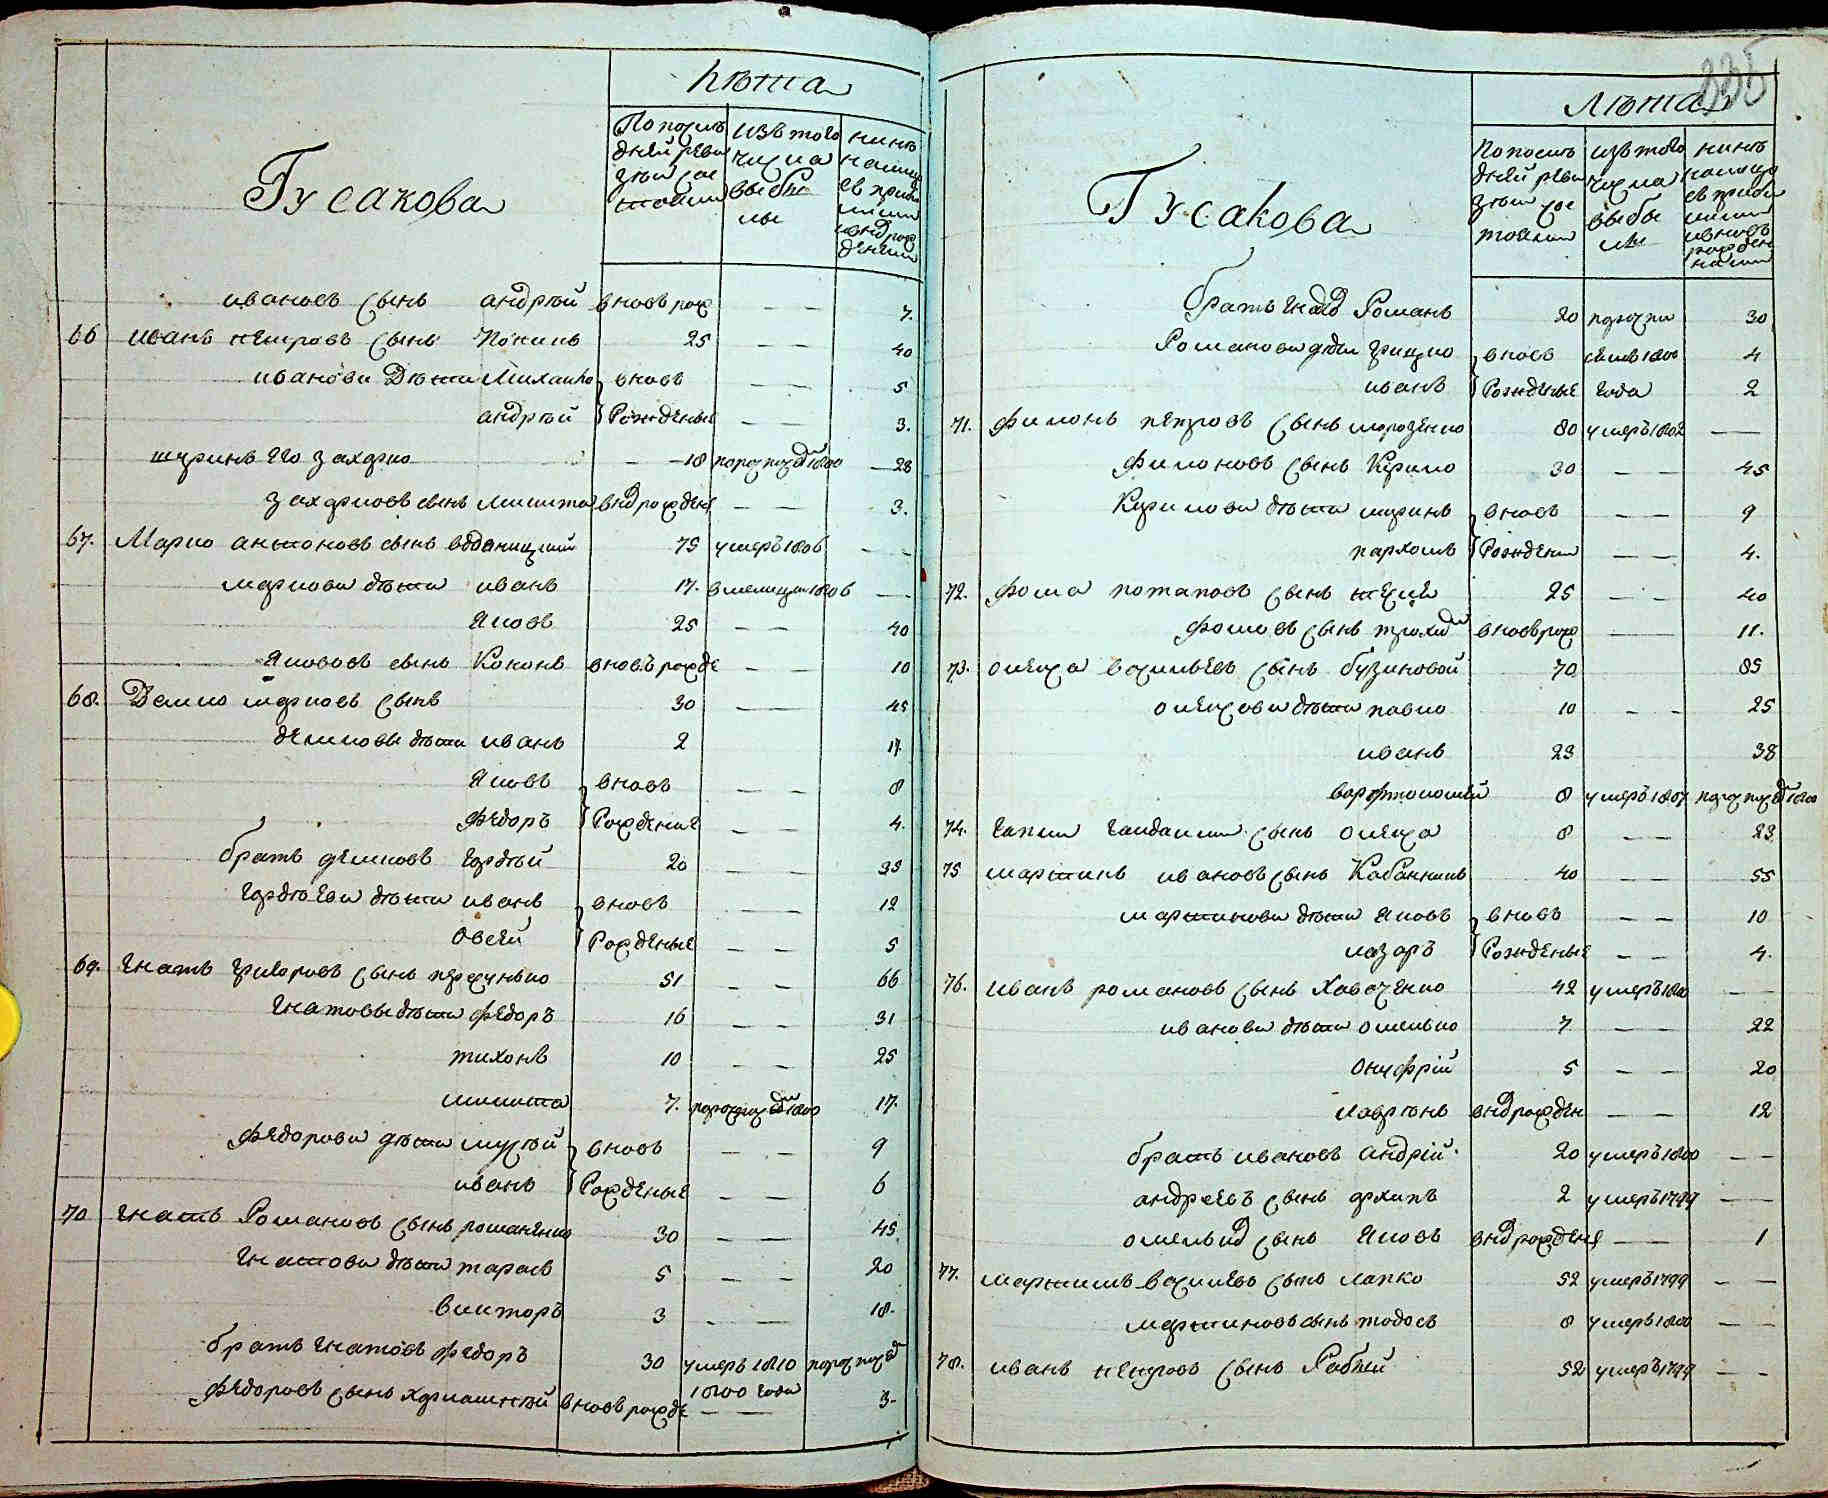 Лѣта
Гусакова
По послѣдней ревизіи состояли
Изъ того числа выбыло
Нинѣ налицо
ивановъ сынъ андрѣй вновь рож — — 7.
66 иванъ петровъ сынъ 25 — — 40
иванови дѣти Михаило вновь — — 5
андрѣй Рожденые — — 3.
шуринъ его захарко 18 1800 28
захарковъ сынъ микита внов рожден — — 3.
67. Марко антоновъ сынъ 75 умеръ 1806 — —
маркови дѣти иванъ 17. 1806 — —
Яковъ 25 — — 40
Якововъ сынъ Кононъ вновь рожде — — 10
68. Демко марковъ сынъ 30 — — 45
демковы дѣти иванъ 2 17
Яковъ вновь — — 8
федоръ Рожденые — — 4.
братъ демковъ гордѣй 20 — — 35
гордѣеви дѣти иванъ вновь — — 12
Овсѣй Рожденые — — 5
69. Гнатъ григоровъ сынъ 51 — — 66
Гнатовы дѣти федоръ 16 — — 31
тихонъ 10 — — 25
микита 7. 1800 17.
федорови дѣти мусѣй вновь — — 9
иванъ Рожденые — — 6
70 гнатъ Романовъ сынъ романенко 30 — — 45
Гнатови дѣти тарасъ 5 — — 20
викторъ 3 — — 18.
братъ гнатовъ федоръ 30 умеръ 1810
1800 года
федоровъ сынъ вновь рожде — — 3
335
Лѣта
Гусакова
По послѣдней ревизіи состояли
Изъ того числа выбыло
Нинѣ налицо
братъ гнатов Романъ 20 30
Романови дѣти грицко вновь 1800 4
иванъ Рожденые года 2
71. филонъ петровъ сынъ морозенко 80 умеръ 1802 —
филоновъ сынъ Кирило 30 — — 45
Кирилови дѣти миринъ вновь — — 9
пархомъ Рождени — — 4.
72. фома потаповъ сынъ 25 — — 40
фомовъ сынъ трохим вновь рож — — 11.
73. олекса василіевъ сынъ бузиновой 70 85
олексови дѣти павло 10 — — 25
иванъ 23 38
вартоломѣй 8 умеръ 1807 1800
74. сынъ олекса 8 — — 23
75 мартинъ ивановъ сынъ 40 — — 55
мартинови дѣти Яковъ вновь — — 10
лазоръ Рожденые — — 4.
76. иванъ романовъ сынъ 42 умеръ 1800 — —
иванови дѣти омелько 7 — — 22
Онуфрій 5 — — 20
лаврѣнъ внов рожден — — 12
братъ ивановъ андрій 20 умеръ 1800 — —
андреевъ сынъ архипъ 2 умеръ 1799 — —
омельков сынъ Яковъ внов рожден — — 1
77. мартинъ василевъ сынъ лапко 52 умеръ 1799 — —
мартиновъ сынъ тодосъ 8 умеръ 1800 — —
78. иванъ петровъ сынъ Рабый 52 умеръ 1799 — —